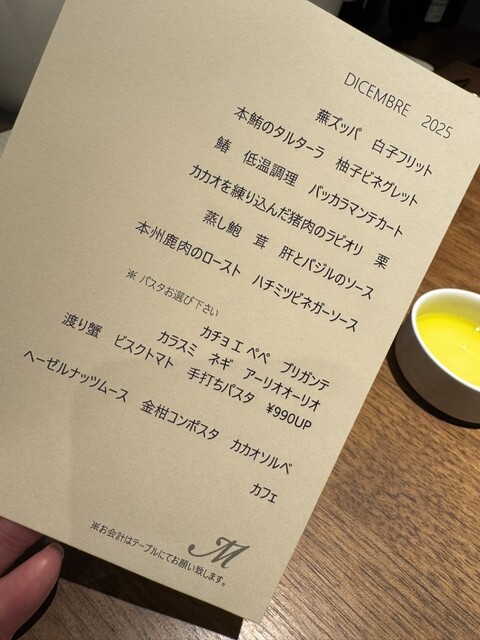 DICEMBRE 2025
蕪ズッパ 白子フリット
本鮪のタルターラ 柚子ビネグレット
鰆 低温調理 バッカラマンテカート
カカオを練り込んだ猪肉のラビオリ 栗
蒸し鮑 茸 肝とバジルのソース
本州鹿肉のロースト ハチミツビネガーソース
※ パスタお選び下さい
カチョ エ ペペ ブリガンテ
カラスミ ネギ アーリオオーリオ
渡り蟹 ビスクトマト 手打ちパスタ ¥990UP
ヘーゼルナッツムース 金柑コンポスタ カカオソルベ
カフェ
M
※お会計はテーブルにてお願い致します。